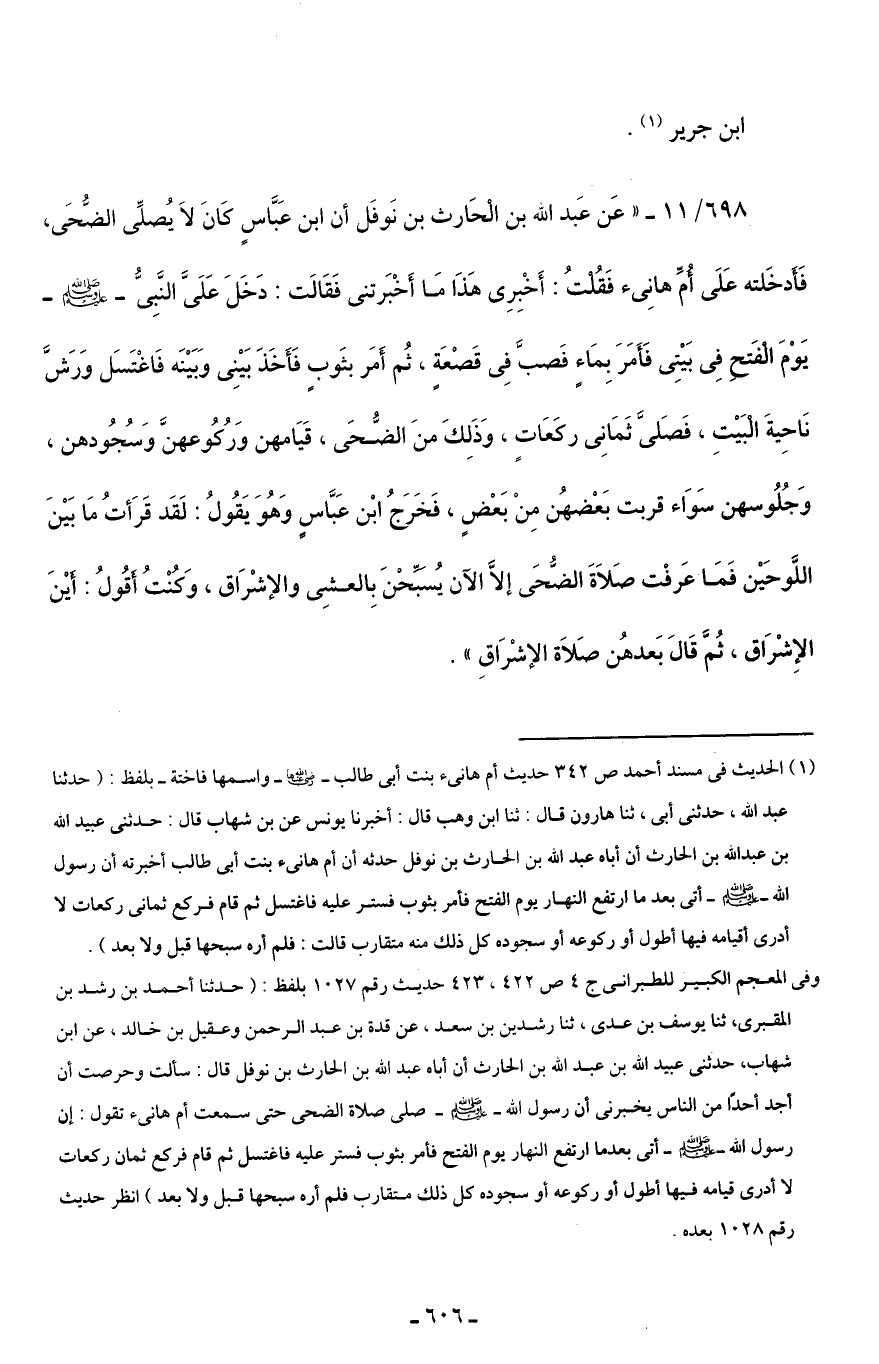 ابن جرير (١) .
٦٩٨/ ١١ ـ « عَن عَبد الله بن الْحَارث بن نَوفَل أن ابن عَبَّاسٍ كَانَ لاَ يُصلِّى الضُّحَى،
فَأَدخَلته عَلَى أُمِّ هانِىء فَقُلْتُ : أَخْبِرِى هَذَا مَا أَخْبَرتنى فَقَالَت : دَخَلَ عَلَىَّ النَّبِىُّ ـ ﷺ ـ
يَوْمَ الْفَتحِ فِى بَيْتِى فَأَمَرَ بِمَاءٍ فَصبَّ فِى قَصْعَةٍ ، ثُم أمَر بثَوبٍ فَأَخَذَ بَيْنِى وَبَيْنَه فَاغْتَسَل وَرَشَّ
نَاحِيةَ الْبَيْتِ ، فَصَلىَّ ثَمَانِى ركَعَاتٍ ، وَذَلِكَ منَ الضُّحَى ، قَيَامهن وَرُكُوعهنَّ وَسُجُودهن ،
وَجُلُوسهن سَوَاء قربت بَعْضهُن مِنْ بَعْضٍ ، فَخَرَجُ ابْن عَبَّاسٍ وَهُوَ يَقُولُ : لَقَد قَرَأتُ مَا بَيْنَ
اللَّوحَيْن فَمَا عَرفْت صَلاَةَ الضُّحَى إلاَّ الآن يُسَبِّحْنَ بِالعشِى والإشْرَاق ، وَكُنْتُ أَقُولُ : أَيْنَ
الإِشْرَاق ، ثُمَّ قَالَ بَعدهُن صَلاَة الإشْرَاقِ » .
(١) الحديث فى مسند أحمد ص ٣٤٢ حديث أم هانىء بنت أبى طالب ـ رضي الله عنها ـ واسمها فاختة ـ بلفظ : ( حدثنا
عبد الله ، حدثنى أبى ، ثنا هارون قال : ثنا ابن وهب قال : أخبرنا يونس عن بن شهاب قال : حدثنى عبيد الله
بن عبدالله بن الحارث أن أباه عبد الله بن الحارث بن نوفل حدثه أن أم هانىء بنت أبى طالب أخبرته أن رسول
الله ـ ﷺ ـ أتى بعد ما ارتفع النهار يوم الفتح فأمر بثوب فستر عليه فاغتسل ثم قام فركع ثمانى ركعات لا
أدرى أقيامه فيها أطول أو ركوعه أو سجوده كل ذلك منه متقارب قالت : فلم أره سبحها قبل ولا بعد ) .
وفى المعجم الكبير للطبرانى ج ٤ ص ٤٢٢ ، ٤٢٣ حديث رقم ١٠٢٧ بلفظ : ( حدثنا أحمد بن رشد بن
المقبرى، ثنا يوسف بن عدى ، ثنا رشدين بن سعد ، عن قدة بن عبد الرحمن وعقيل بن خالد ، عن ابن
شهاب، حدثنى عبيد الله بن عبد الله بن الحارث أن أباه عبد الله بن الحارث بن نوفل قال : سألت وحرصت أن
أجد أحدًا من الناس يخبرنى أن رسول الله ـ ﷺ ـ صلى صلاة الضحى حتى سمعت أم هانىء تقول : إن
رسول الله ـ ﷺ ـ أتى بعدما ارتفع النهار يوم الفتح فأمر بثوب فستر عليه فاغتسل ثم قام فركع ثمان ركعات
لا أدرى قيامه فيها أطول أو ركوعه أو سجوده كل ذلك متقارب فلم أره سبحها قبل ولا بعد ) انظر حديث
رقم ١٠٢٨ بعده .
ـ ٦٠٦ ـ